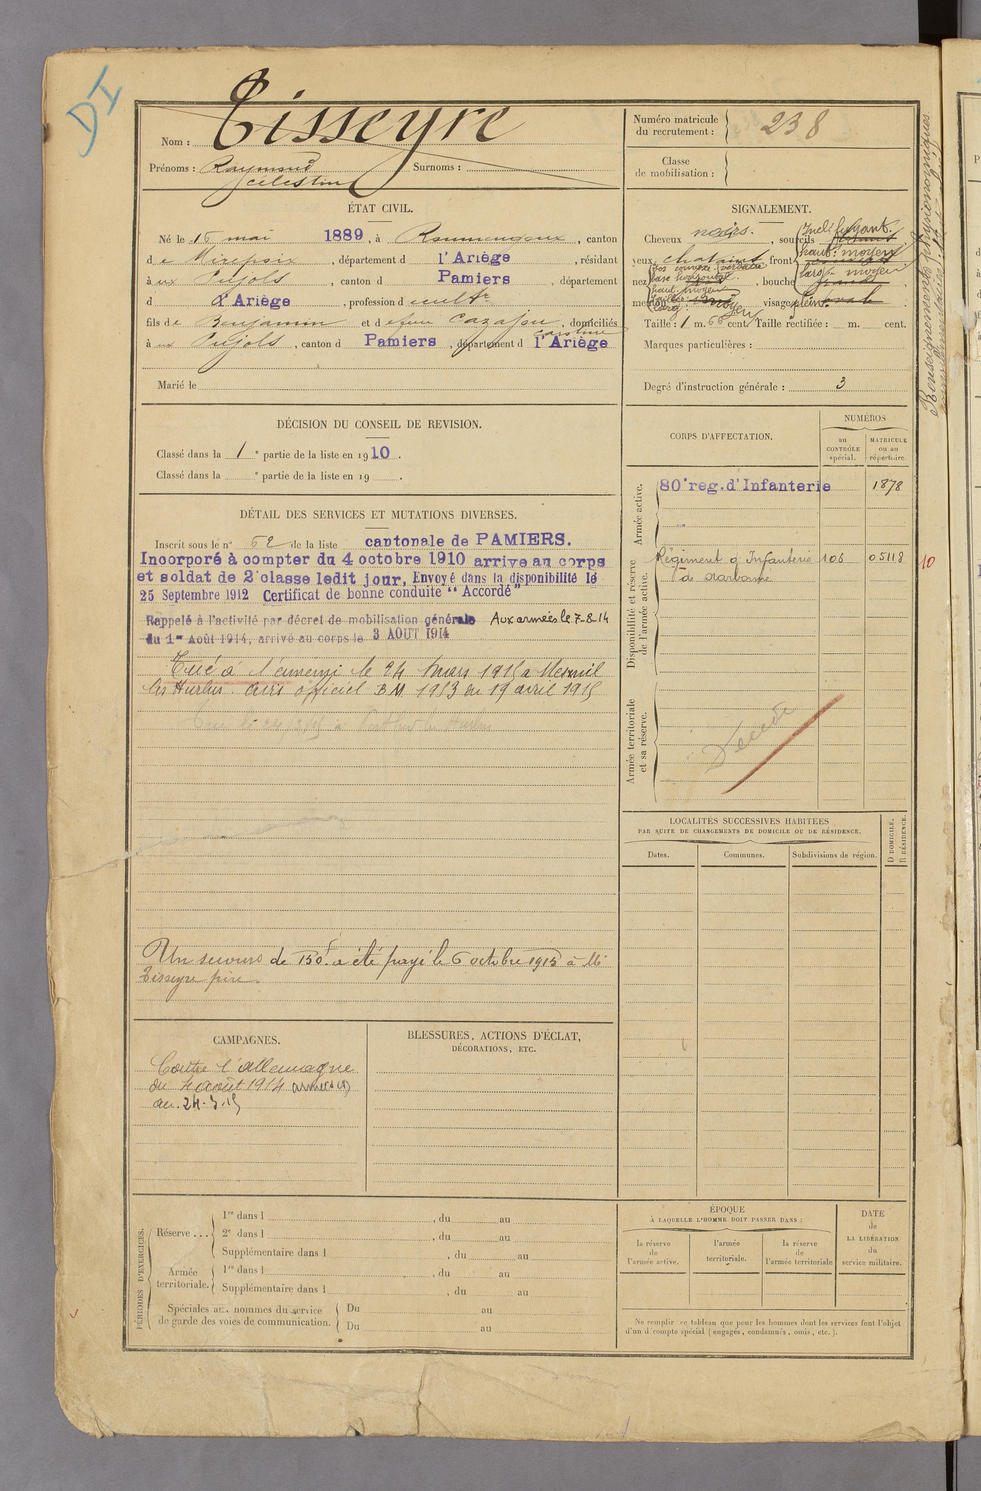 DI
Nom : Tisseyre
Prénoms : Raymond Surnoms :
Célestin
Numéro matricule
du recrutement : 238
Classe
de mobilisation :
ÉTAT CIVIL.
Né le 15 mai 1889, à Roumengoux, canton
de Mirepoix, département d l'Ariège, résidant
à aux Pujols, canton d Pamiers, département
d L'Ariège, profession de cultr
fils de Benjamin et de feue Cazajou, domiciliés
Caroline
à aux Pujols, canton d Pamiers, département d l'Ariège
Marié le
SIGNALEMENT.
Cheveux noirs, sourcils
yeux chatains, front
Incl. fuyant.
haut : moyen
larg : moyen
nez, bouche
dos convexe
base horizontal
haut. moyen
menton, visage plein
moyen
Taille : 1 m. 66 cent. Taille rectifiée : m. cent.
Marques particulières :
Degré d'instruction générale : 3
Renseignements physionomiques
DÉCISION DU CONSEIL DE REVISION.
Classé dans la 1e partie de la liste en 1910.
Classé dans la e partie de la liste en 19 .
DÉTAIL DES SERVICES ET MUTATIONS DIVERSES.
Inscrit sous le n° 52 de la liste cantonale de PAMIERS.
Incorporé à compter du 4 octobre 1910 arrive au corps
et soldat de 2e classe ledit jour, Envoyé dans la disponibilité le
25 Septembre 1912 Certificat de bonne conduite “ Accordé ”
Rappelé à l'activité par décret de mobilisation générale Aux armées le 7-8-14
du 1er Août 1914, arrivé au corps le 3 AOUT 1914
Tué à l'ennemi le 24 mars 1915 à Mesnil
les Hurlus. Avis officiel BM 1913 du 19 avril 1915
Un secours de 150f a été payé le 6 octobre 1915 à Mr
Tisseyre père.
CORPS D'AFFECTATION.
NUMÉROS
au
CONTRÔLE
spécial.
MATRICULE
ou au
répertoire.
Armée active.
80e reg. d'Infanterie 1878
Disponibilité et réserve
de l'armée active.
Régiment d'Infanterie 106 05118
de Narbonne
10
Armée territoriale
et sa réserve.
Décédé
LOCALITÉS SUCCESSIVES HABITÉES
PAR SUITE DE CHANGEMENTS DE DOMICILE OU DE RÉSIDENCE.
Dates.
Communes.
Subdivisions de région.
D DOMICILE.
R RÉSIDENCE.
CAMPAGNES.
Contre l'Allemagne
du 4 août 1914
au 24-3-15
BLESSURES, ACTIONS D'ÉCLAT,
DÉCORATIONS, ETC.
PÉRIODES D'EXERCICES.
Réserve ...
1re dans l , du au
2e dans l , du au
Supplémentaire dans l , du au
Armée
territoriale.
1re dans l , du au
Supplémentaire dans l , du au
Spéciales aux hommes du service
de garde des voies de communication.
Du au
Du au
ÉPOQUE
À LAQUELLE L'HOMME DOIT PASSER DANS :
la réserve
de
l'armée active.
l'armée
territoriale.
la réserve
de
l'armée territoriale
DATE
de
LA LIBÉRATION
du
service militaire.
Ne remplir ce tableau que pour les hommes dont les services font l'objet
d'un décompte spécial (engagés, condamnés, omis, etc.).